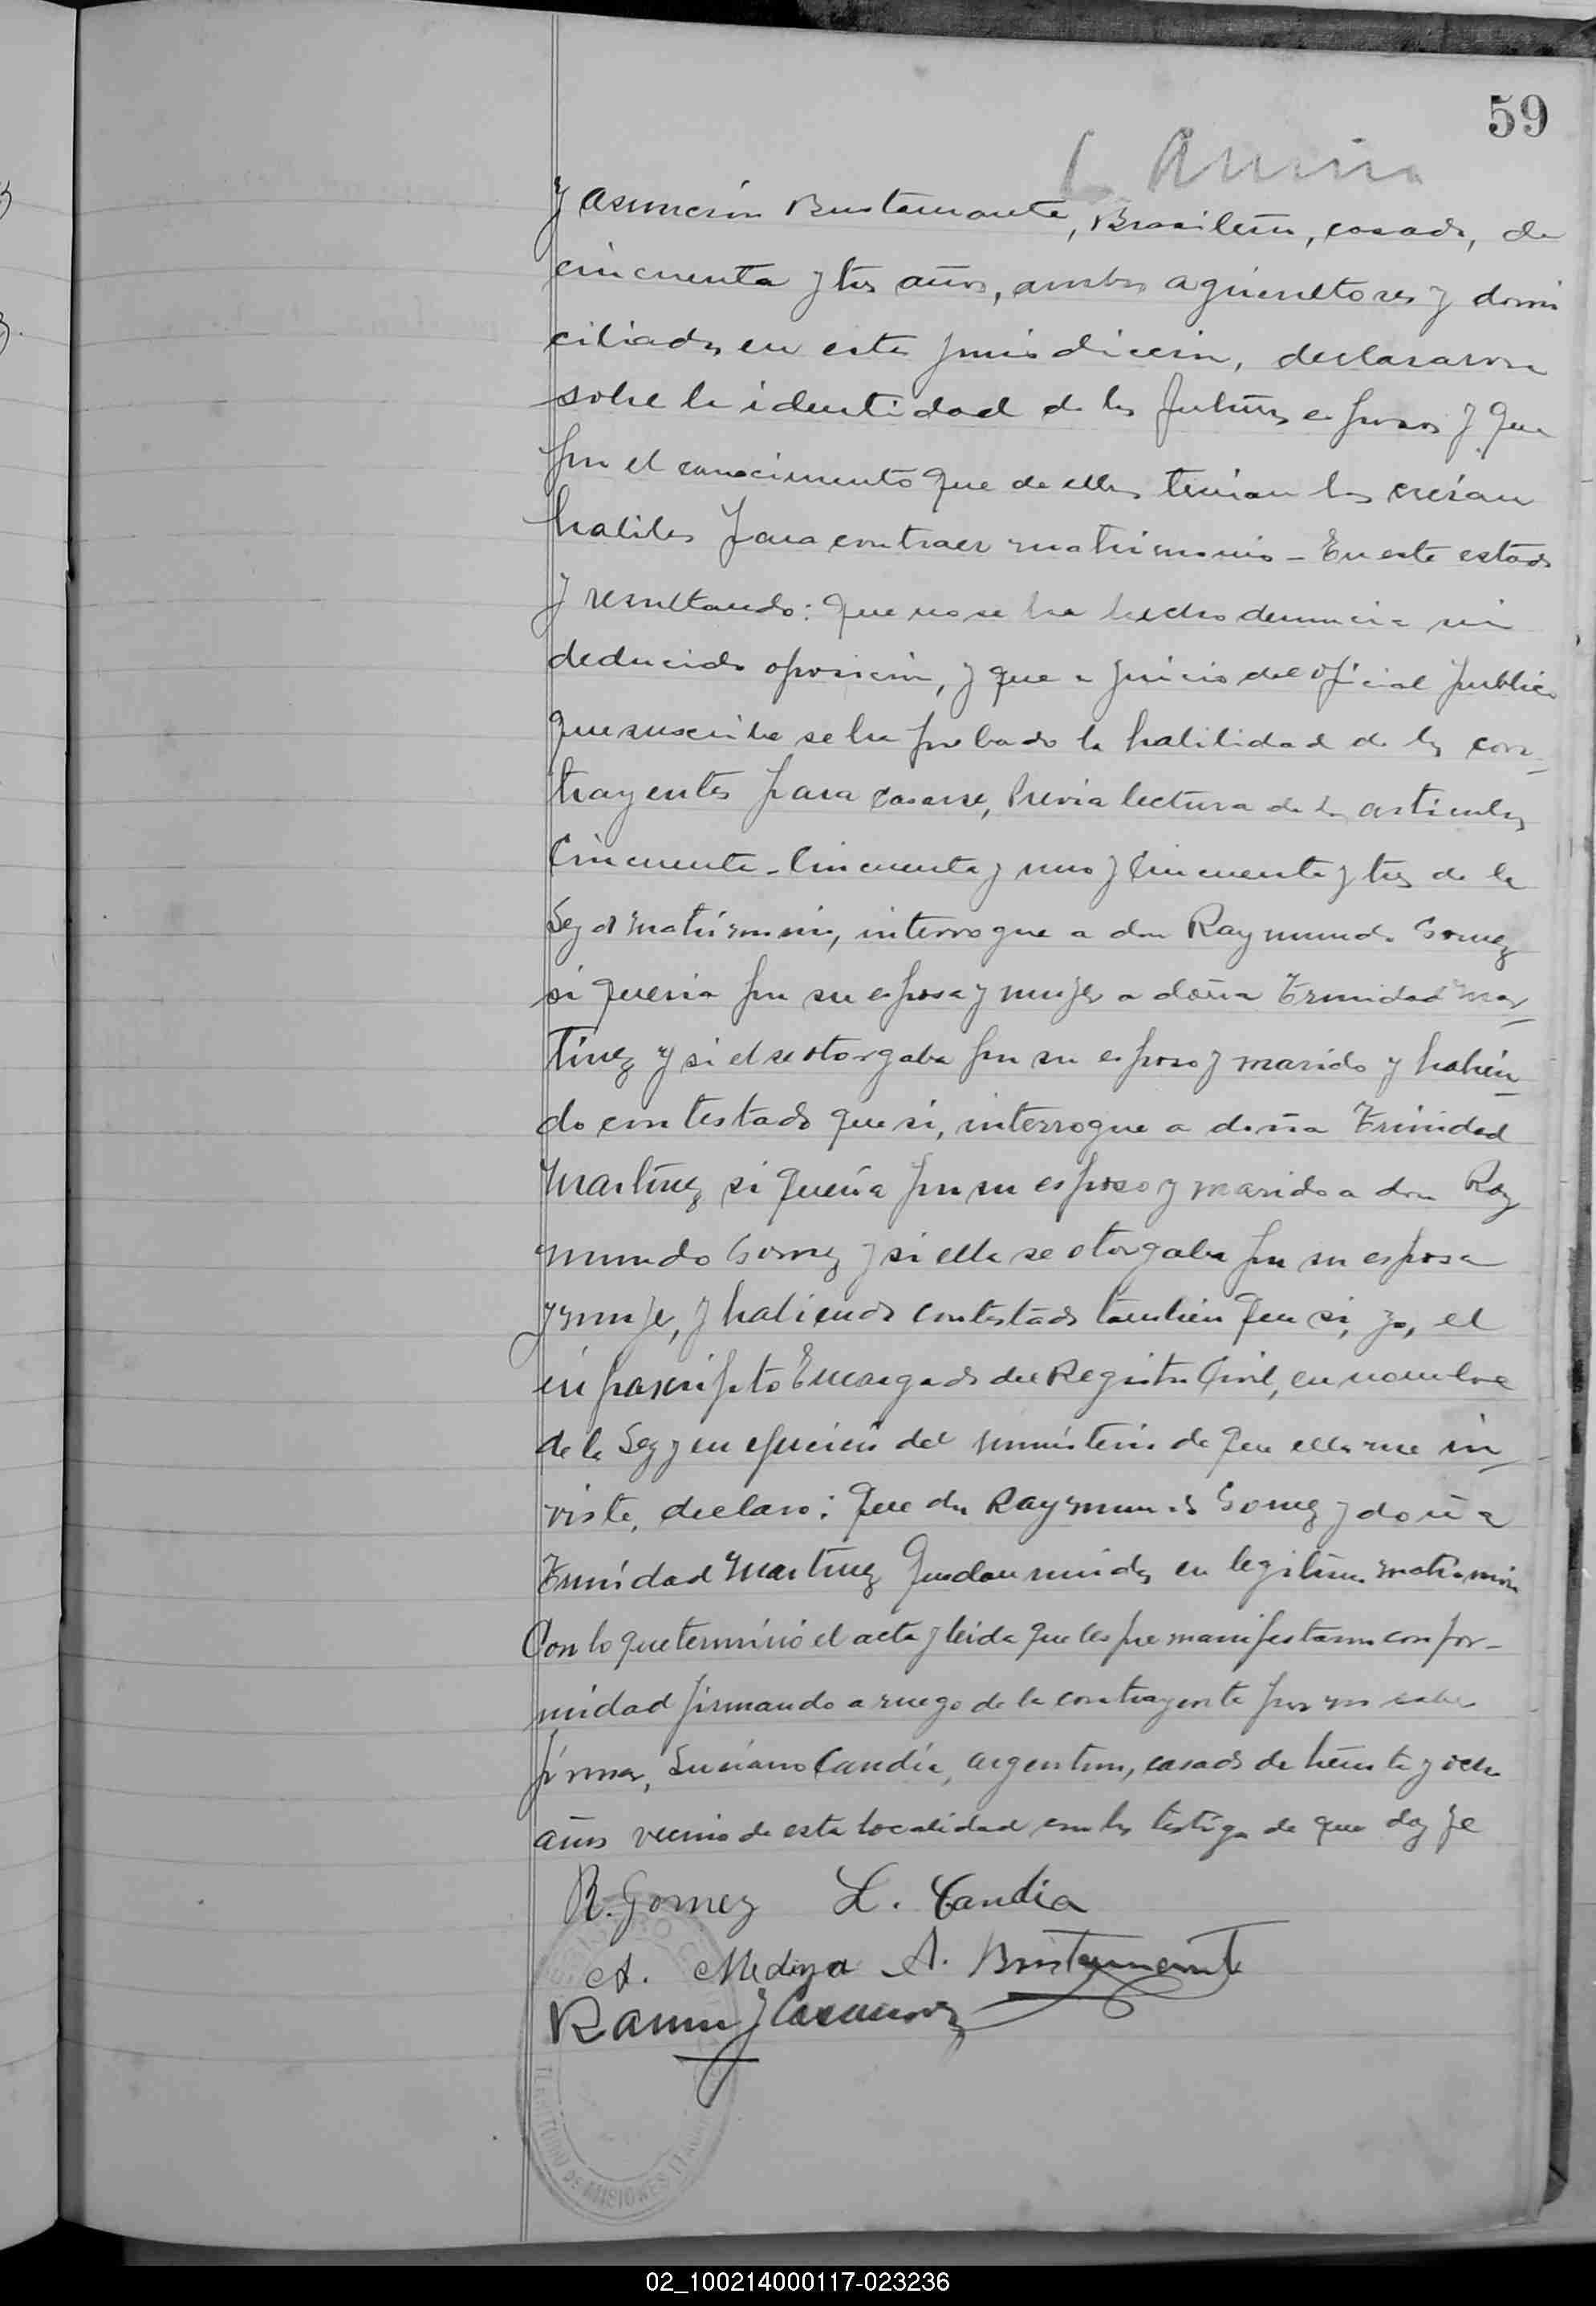 59
y Asunción Bustamante, Brasilero, casado, de
cincuenta y tres años, ambos agricultores y domi
ciliados en esta jurisdiccion, declararon
sobre la identidad de los futuros esposos y que
por el conocimiento que de ellos tenian los creian
habiles para contraer matrimonio - En este estado
y resultando: que no se ha hecho denuncia ni
deducido oposicion, y que a juicio del oficial publico
que suscribe se ha probado la habilidad de los con-
trayentes para casarse, Previa lectura de los articulos
Cincuenta - Cincuenta y uno y Cincuenta y tres de la
Ley d matrimonio, interrogue a don Raymundo Gomez
si queria por su esposa y mujer a doña Trinidad Mar-
tinez y si el se otorgaba por su esposo y marido y habien-
do contestado que si, interrogue a doña Trinidad
Martinez si queria por su esposo y marido a don Ray
mundo Gomez y si ella se otorgaba por su esposa
y mujer, y habiendo contestado tambien que si, yo, el
infrascripto Encargado del Registro Civil, en nombre
de la Ley y en ejercicio del ministerio de que ella me in-
viste, declaro: que don Raymundo Gomez y doña
Trinidad Martinez quedan unidos en legitimo matrimonio
Con lo que terminó el acta y leida que les fue manifestaron confor-
midad firmando a ruego de la contrayente por no saber
firmar, Luciano Candia, argentino, casado de treinta y ocho
años vecino de esta localidad con los testigos de que doy fe
R. Gomez L. Candia
A. Medina A. Bustamante
Ramon J Casanova
TERRITORIO DE MISIONES
02_100214000117-023236